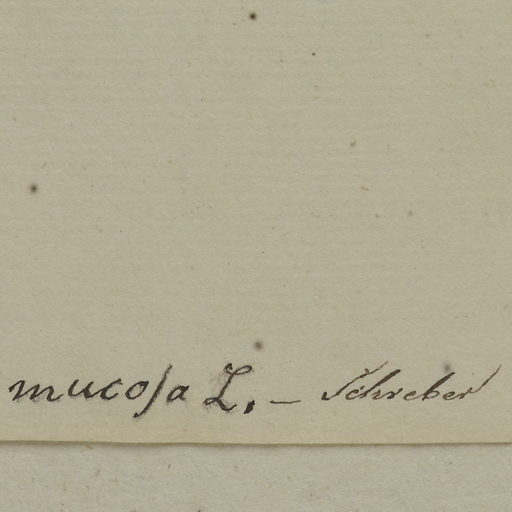 mucoſa L. – Schreber